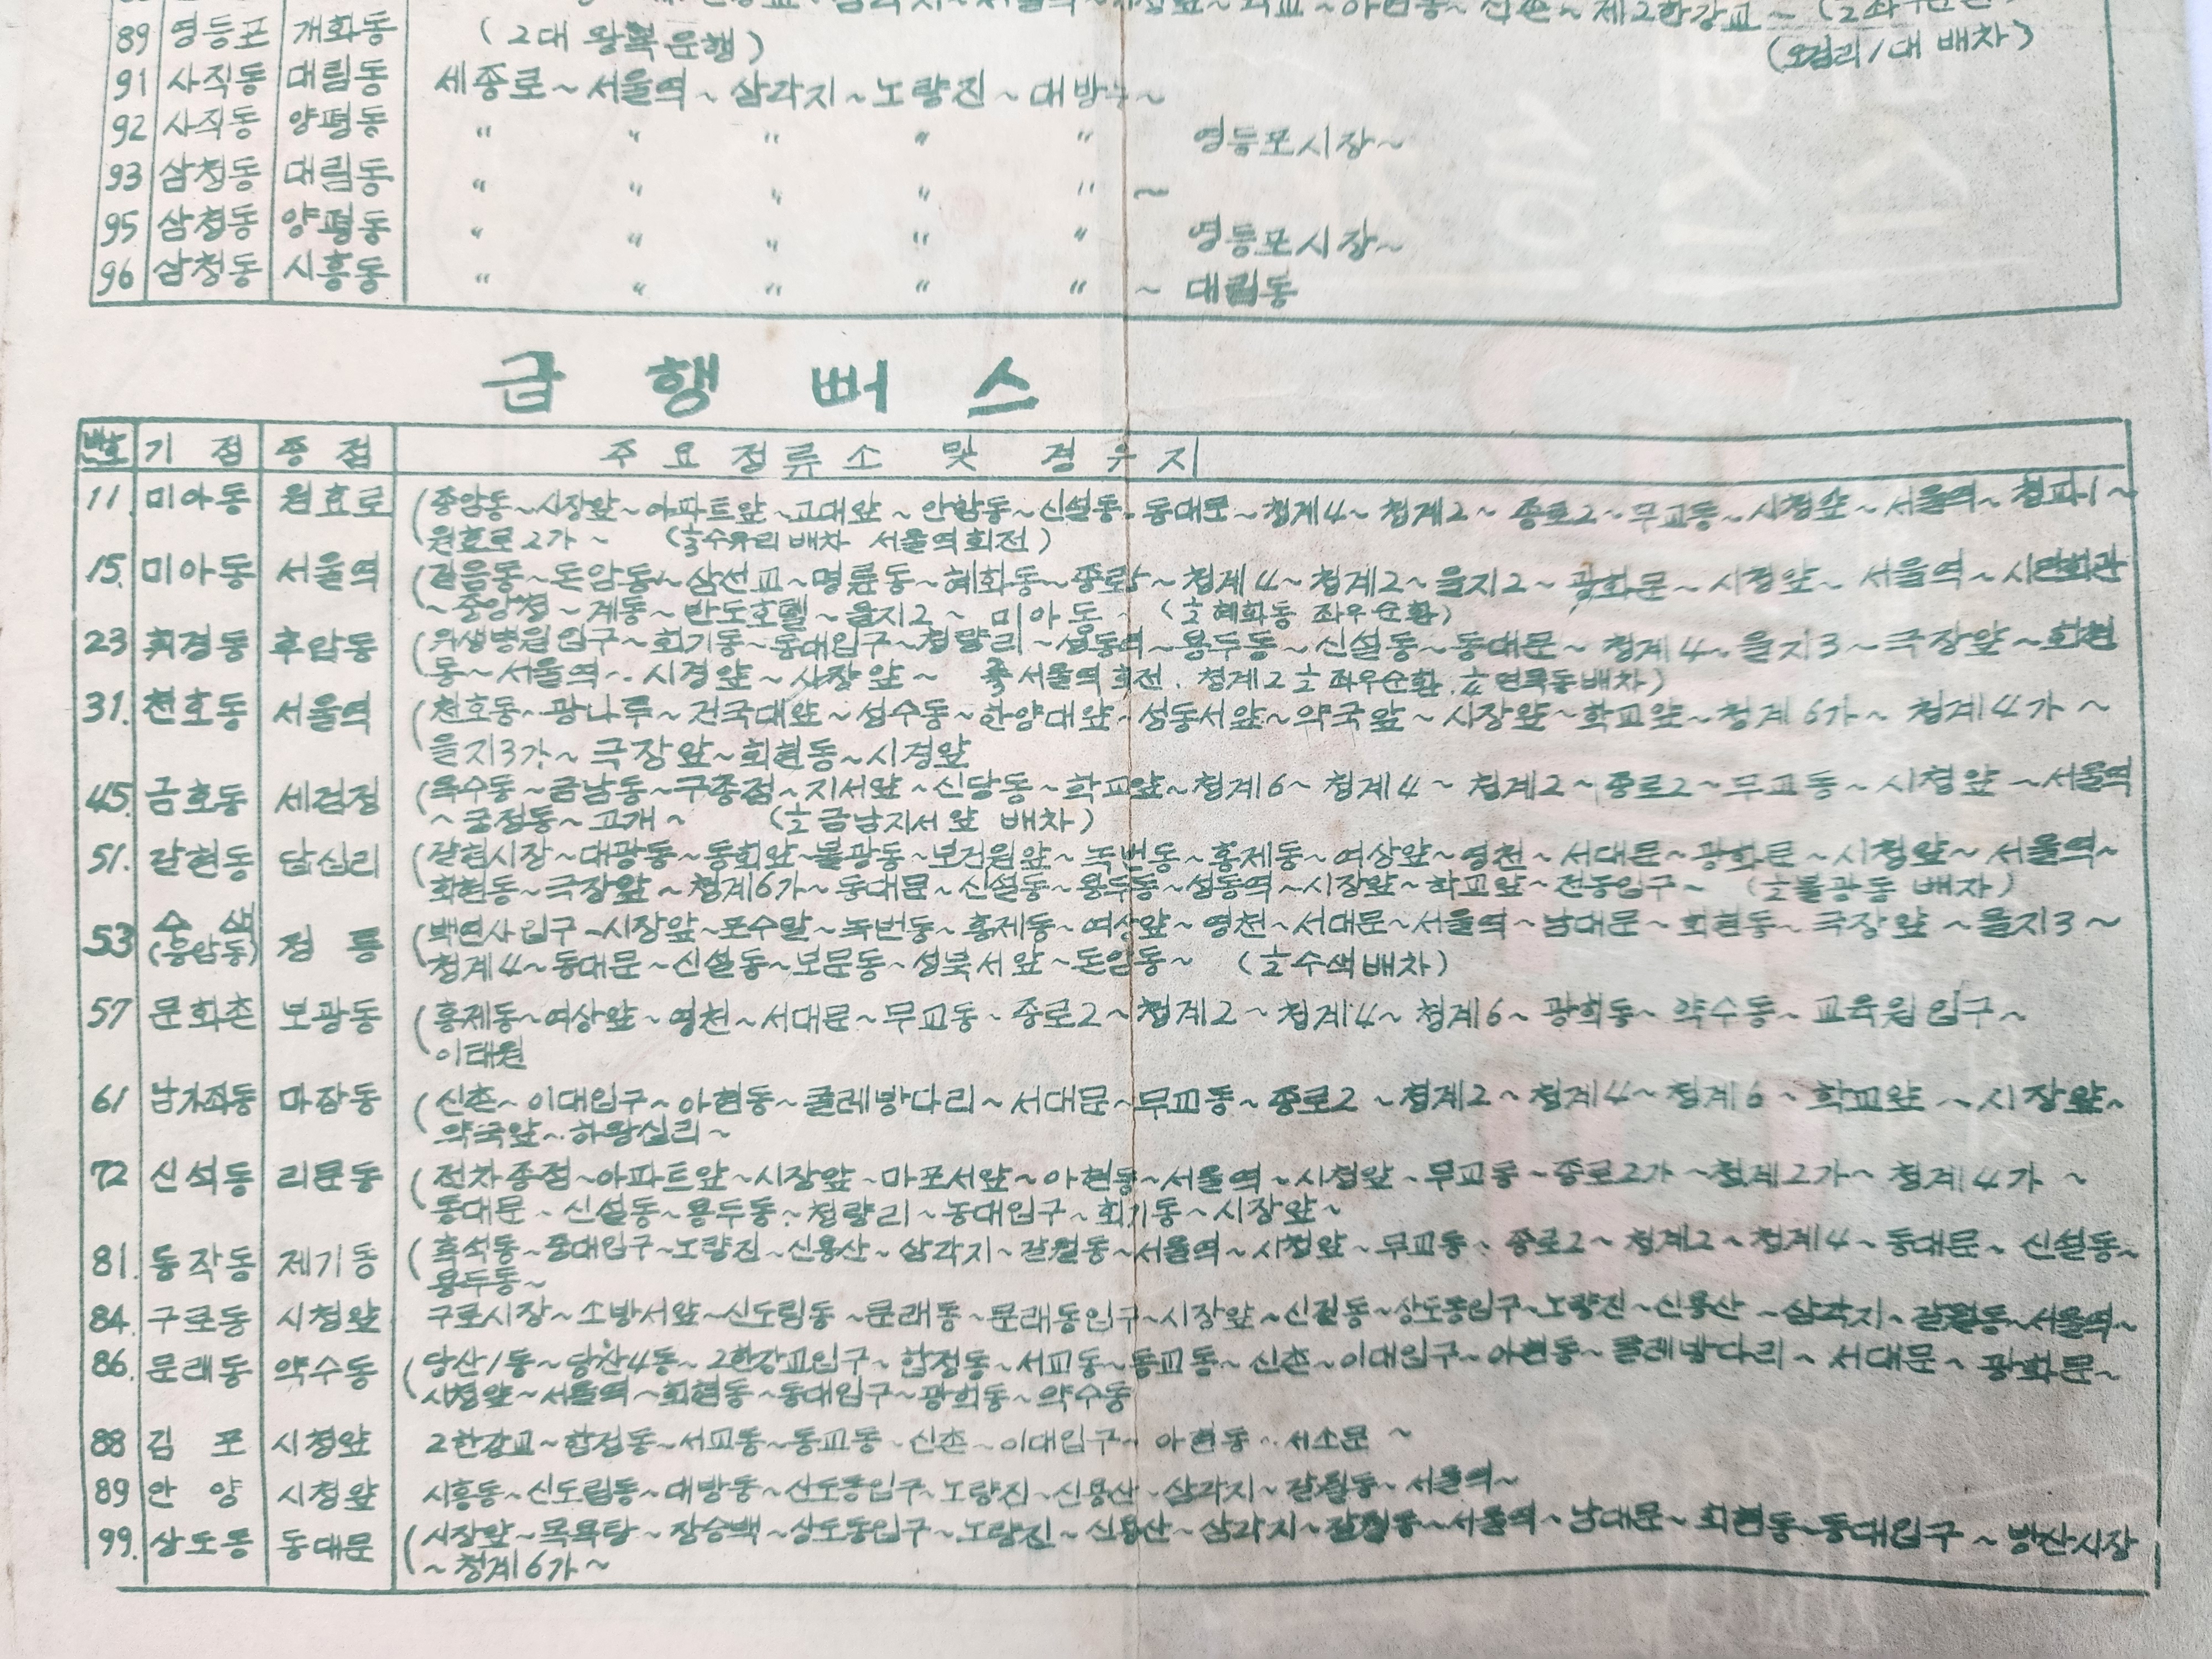 89 영등포 개화동 (2대 왕복운행) (오검리 1대 배차)
91 사직동 대림동 세종로~서울역~삼각지~노량진~대방동~
92 사직동 양평동 〃 〃 〃 〃 〃 영등포시장~
93 삼청동 대림동 〃 〃 〃 〃 〃 ~
95 삼청동 양평동 〃 〃 〃 〃 〃 영등포시장~
96 삼청동 시흥동 〃 〃 〃 〃 〃 ~ 대림동
급행뻐스
번호 기점 종점 주요정류소 및 경유지
11. 미아동 원효로 (종암동~시장앞~아파트앞~고대앞~안암동~신설동~동대문~청계4~청계2~종로2~무교동~시청앞~서울역~청파1~
원효로2가~ (⅓수유리배차 서울역회전)
15. 미아동 서울역 (길음동~돈암동~삼선교~명륜동~혜화동~종로5~청계4~청계2~을지2~광화문~시청앞~서울역~시민회관
~중앙청~계동~반도호텔~을지2~미아도~ (½혜화동 좌우순환)
23 휘경동 후암동 (위생병원입구~회기동~동대입구~청량리~성동역~용두동~신설동~동대문~청계4~을지3~극장앞~회현
동~서울역~시경앞~시장앞~ 서울역회전. 청계2 ½좌우순환. ¼면목동배차)
31. 천호동 서울역 (천호동~광나루~건국대앞~성수동~한양대앞~성동서앞~약국앞~시장앞~학교앞~청계6가~청계4가~
을지3가~극장앞~회현동~시경앞
45. 금호동 세검정 (옥수동~금남동~구종점~지서앞~신당동~학교앞~청계6~청계4~청계2~종로2~무교동~시청앞~서울역
~궁정동~고개~ (½금남지서앞 배차)
51. 갈현동 답십리 (갈현시장~대광동~동회앞~불광동~보건원앞~녹번동~홍제동~여상앞~영천~서대문~광화문~시청앞~서울역~
회현동~극장앞~청계6가~동대문~신설동~용두동~성동역~시장앞~학교앞~전농입구~ (½불광동 배차)
53 수색(응암동) 정릉 (백련사입구~시장앞~포수말~녹번동~홍제동~여상앞~영천~서대문~서울역~남대문~회현동~극장앞~을지3~
청계4~동대문~신설동~보문동~성북서앞~돈암동~ (½수색배차)
57 문화촌 보광동 (홍제동~여상앞~영천~서대문~무교동~종로2~청계2~청계4~청계6~광희동~약수동~교육원입구~
이태원
61 남가좌동 마장동 (신촌~이대입구~아현동~굴레방다리~서대문~무교동~종로2~청계2~청계4~청계6~학교앞~시장앞~
약국앞~하왕십리~
72 신석동 리문동 (전차종점~아파트앞~시장앞~마포서앞~아현동~서울역~시청앞~무교동~종로2가~청계2가~청계4가~
동대문~신설동~용두동~청량리~농대입구~회기동~시장앞~
81. 동작동 제기동 (흑석동~중대입구~노량진~신용산~삼각지~갈월동~서울역~시청앞~무교동~종로2~청계2~청계4~동대문~신설동~
용두동~
84. 구로동 시청앞 구로시장~소방서앞~신도림동~문래동~문래동입구~시장앞~신길동~상도동입구~노량진~신용산~삼각지~갈월동~서울역~
86. 문래동 약수동 (당산1동~당산4동~2한강교입구~합정동~서교동~동교동~신촌~이대입구~아현동~굴레방다리~서대문~광화문~
시청앞~서울역~회현동~동대입구~광희동~약수동
88 김포 시청앞 2한강교~합정동~서교동~동교동~신촌~이대입구~아현동~서소문~
89 안양 시청앞 시흥동~신도림동~대방동~상도동입구~노량진~신용산~삼각지~갈월동~서울역~
99. 상도동 동대문 (시장앞~목욕탕~장승백~상도동입구~노량진~신용산~삼각지~갈월동~서울역~남대문~회현동~동대입구~방산시장
~청계6가~